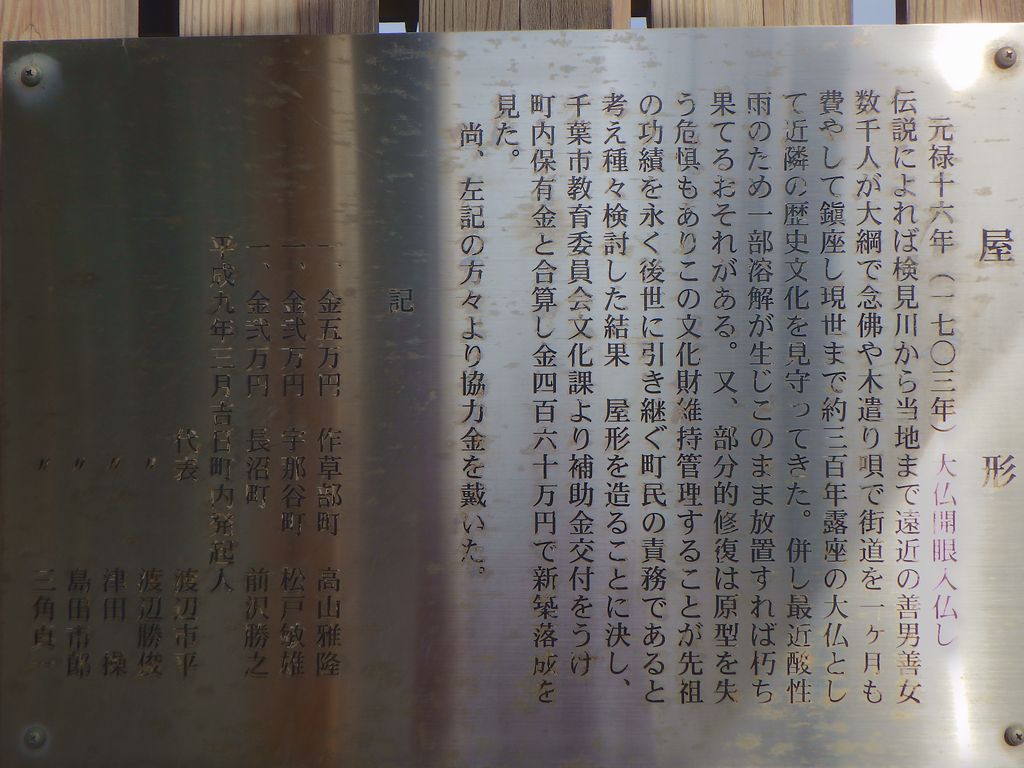 屋形
元禄十六年（一七〇三年）大仏開眼入仏し
伝説によれば検見川から当地まで遠近の善男善女
数千人が大綱で念佛や木遣り唄で街道を一ヶ月も
費やして鎭座し現世まで約三百年露座の大仏とし
て近隣の歴史文化を見守ってきた。併し最近酸性
雨のため一部溶解が生じこのまま放置すれば朽ち
果てるおそれがある。又、部分的修復は原型を失
う危惧もありこの文化財維持管理することが先祖
の功績を永く後世に引き継ぐ町民の責務であると
考え種々検討した結果　屋形を造ることに決し、
千葉市教育委員会文化課より補助金交付をうけ
町内保有金と合算し金四百六十万円で新築落成を
見た。
尚、左記の方々より協力金を戴いた。
記
一、金五万円　作草部町　高山雅隆
一、金弐万円　宇那谷町　松戸敏雄
一、金弐万円　長沼町　前沢勝之
平成九年三月吉日町内発起人
代表　渡辺市平
〃　渡辺勝俊
〃　津田　操
〃　島田市郎
〃　三角真一